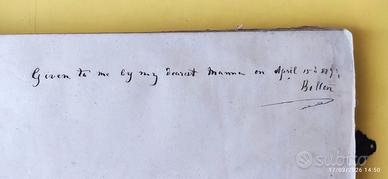 Given to me by my dearest Mamma on April 15th 1889;
subito
17/03/2026 14:50